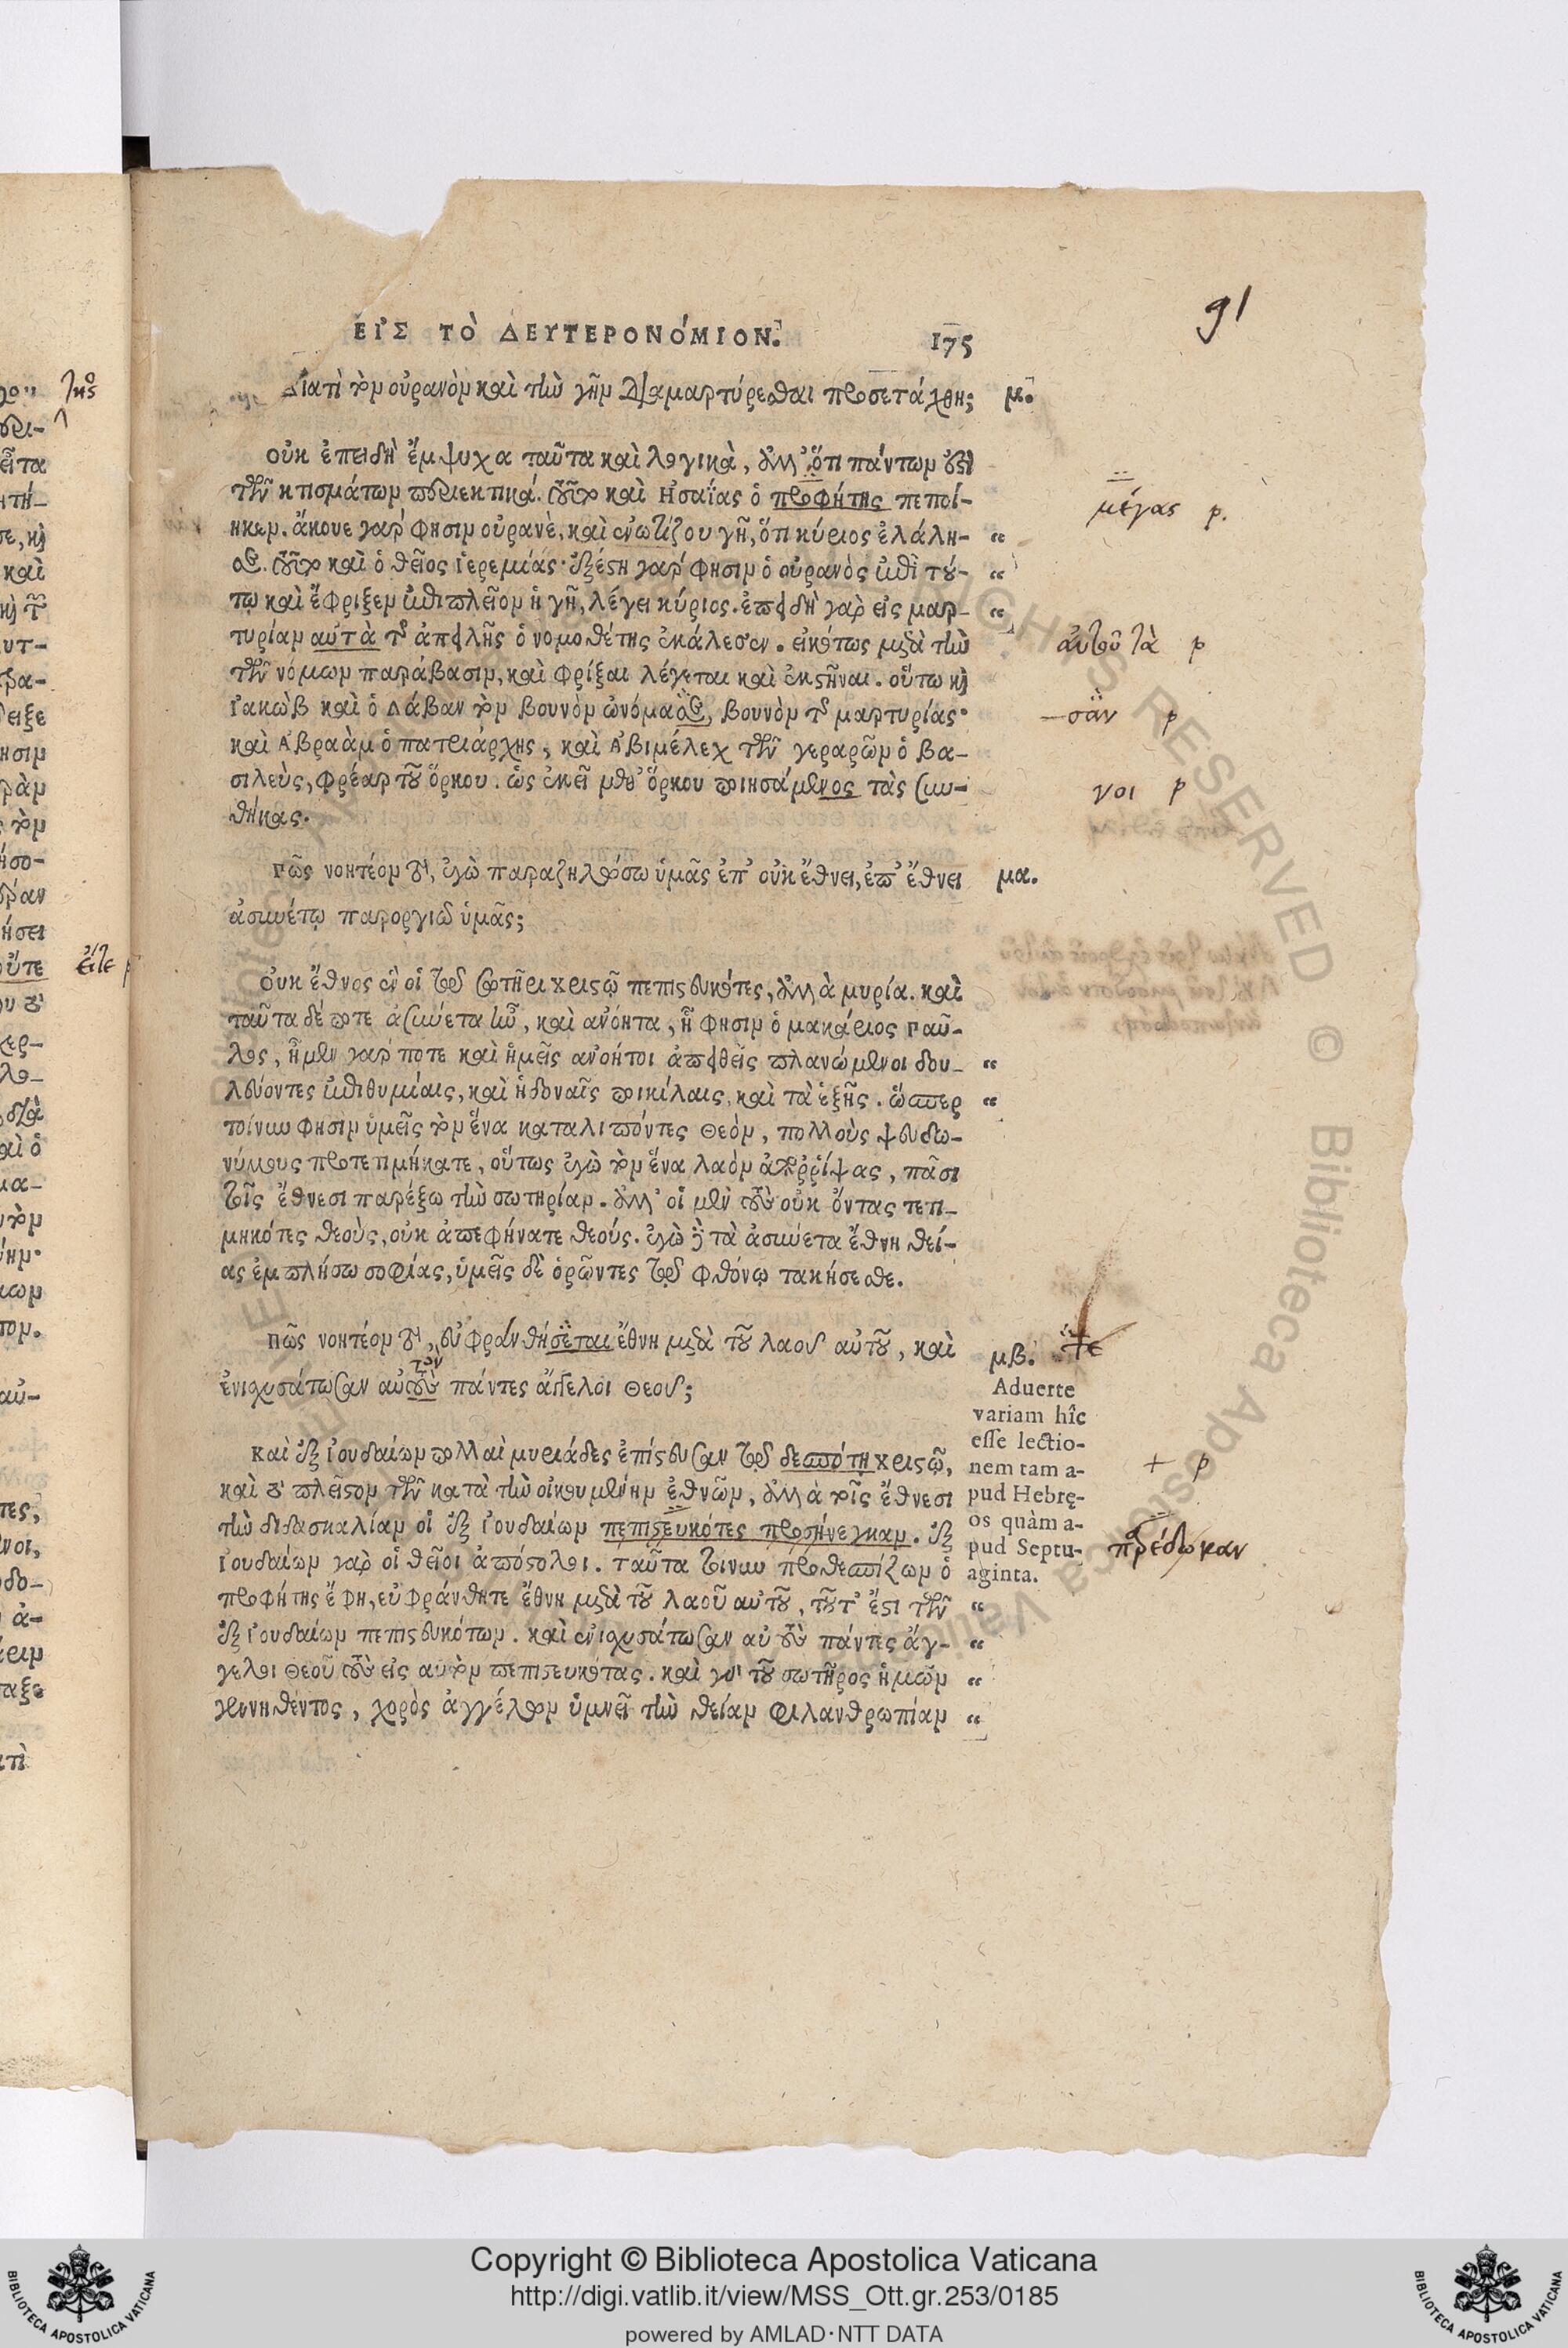 91
ΕΙ᾿Σ ΤΟ` ΔΕΥΤΕΡΟΝΟ´ΜΙΟΝ. 175
Διατὶ τὸν οὐρανὸν καὶ τὴν γῆν διαμαρτύρεσθαι προσετάχθη; μ.
οὐκ ἐπειδὴ ἔμψυχα ταῦτα καὶ λογικὰ, ἀλλ᾿ ὅτι πάντων ἐστὶ
τῶν κτισμάτων περιεκτικά. τοῦτο καὶ Ησαΐας ὁ προφήτης πεποί-
μέγας p.
ηκεν. ἄκουε γάρ φησιν οὐρανὲ, καὶ ἐνωτίζου γῆ, ὅτι κύριος ἐλάλη- “
σε. τοῦτο καὶ ὁ θεῖος ἱερεμίας· ἐξέστη γάρ φησιν ὁ οὐρανὸς ἐπὶ τού- “
τῳ καὶ ἔφριξεν ἐπιπλεῖον ἡ γῆ, λέγει κύριος. ἐπειδὴ γὰρ εἰς μαρ- “
τυρίαν αὐτὰ τῆς ἀπειλῆς ὁ νομοθέτης ἐκάλεσεν. εἰκότως μετὰ τὴν
αὐτοῦ τὰ p
τῶν νόμων παράβασιν, καὶ φρίξαι λέγεται καὶ ἐκστῆναι. οὕτω καὶ
ἰακὼβ καὶ ὁ Λάβαν τὸν βουνὸν ὠνόμασε, βουνὸν τῆς μαρτυρίας·
—σαν p
καὶ Α᾿βραὰμ ὁ πατριάρχης, καὶ Α᾿βιμέλεχ τῶν γεραρῶν ὁ βα-
σιλεὺς, φρέαρ τοῦ ὅρκου. ὡς ἐκεῖ μεθ᾿ ὅρκου ποιησάμενος τὰς συν-
νοι p
θήκας.
πῶς νοητέον τὸ, ἐγὼ παραζηλώσω ὑμᾶς ἐπ᾿ οὐκ ἔθνει, ἐπ᾿ ἔθνει μα.
ἀσυνέτῳ παροργιῶ ὑμᾶς;
οὐκ ἔθνος ἓν οἱ τῷ σωτῆρι χριστῷ πεπιστευκότες, ἀλλὰ μυρία. καὶ
ταῦτα δέ ποτε ἀσύνετα ἦν, καὶ ἀνόητα, ᾗ φησιν ὁ μακάριος παῦ-
λος, ἦμεν γάρ ποτε καὶ ἡμεῖς ἀνόητοι ἀπειθεῖς πλανώμενοι δου- “
λεύοντες ἐπιθυμίαις, καὶ ἡδοναῖς ποικίλαις, καὶ τὰ ἑξῆς. ὥσπερ “
τοίνυν φησὶν ὑμεῖς τὸν ἕνα καταλιπόντες θεὸν, πολλοὺς ψευδω-
νύμους προτετιμήκατε, οὕτως ἐγὼ τὸν ἕνα λαὸν ἀπορρίψας, πᾶσι
τοῖς ἔθνεσι παρέξω τὴν σωτηρίαν. ἀλλ᾿ οἱ μὲν τοὺς οὐκ ὄντας τετι-
μηκότες θεοὺς, οὐκ ἀπεφήνατε θεούς. ἐγὼ δὲ τὰ ἀσύνετα ἔθνη θεί-
ας ἐμπλήσω σοφίας, ὑμεῖς δὲ ὁρῶντες τῷ φθόνῳ τακήσεσθε.
πῶς νοητέον τὸ, εὐφρανθήσεται ἔθνη μετὰ τοῦ λαοῦ αὐτοῦ, καὶ μβ.
τε
τὸν
ἐνισχυσάτωσαν αὐτοὺς πάντες ἄγγελοι θεοῦ;
Aduerte
variam hîc
esse lectio-
nem tam a-
pud Hebrę-
os quàm a-
pud Septu-
aginta.
καὶ ἐξ ἰουδαίων πολλαὶ μυριάδες ἐπίστευσαν τῷ δεσπότῃ χριστῷ,
+ p
καὶ τὸ πλεῖστον τῶν κατὰ τὴν οἰκουμένην ἐθνῶν, ἀλλὰ τοῖς ἔθνεσι
τὴν διδασκαλίαν οἱ ἐξ ἰουδαίων πεπιστευκότες προσήνεγκαν. ἐξ
ἰουδαίων γὰρ οἱ θεῖοι ἀπόστολοι. ταῦτα τοίνυν προθεσπίζων ὁ
προφήτης ἔφη, εὐφράνθητε ἔθνη μετὰ τοῦ λαοῦ αὐτοῦ, τοῦτ᾿ ἔστι τῶν “
ἐξ ἰουδαίων πεπιστευκότων. καὶ ἐνισχυσάτωσαν αὐτοὺς πάντες ἄγ- “
γελοι θεοῦ τοὺς εἰς αὐτὸν πεπιστευκότας. καὶ γὰρ τοῦ σωτῆρος ἡμῶν “
γεννηθέντος, χορὸς ἀγγέλων ὑμνεῖ τὴν θείαν φιλανθρωπίαν “
Copyright © Biblioteca Apostolica Vaticana
http://digi.vatlib.it/view/MSS_Ott.gr.253/0185
powered by AMLAD·NTT DATA
BIBLIOTECA APOSTOLICA VATICANA
BIBLIOTECA APOSTOLICA VATICANA